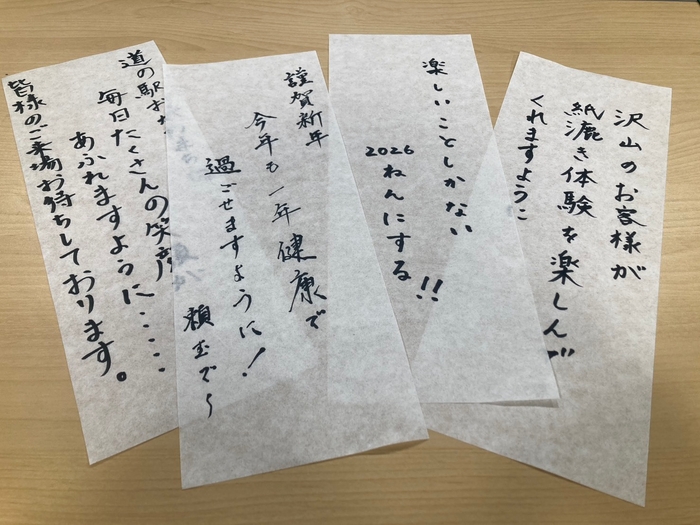 沢山のお客様が
紙漉き体験を楽しんで
くれますように
楽しいことしかない
2026
ねんにする!!
謹賀新年
今年も一年健康で
過ごせますように!
頼むで〜
道の駅お
毎日たくさんの笑顔
あふれますように……
皆様のご来場お待ちしております。